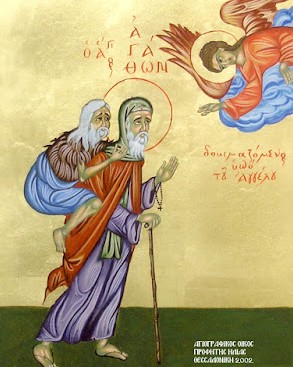 ὁ ἅγιος
ἀ
γά
θων
δοκιμαζόμενος
ὑπὸ
τοῦ Ἀγγέλου
ΑΓΙΟΓΡΑΦΙΚΟΣ ΟΙΚΟΣ
ΠΡΟΦΗΤΗΣ ΗΛΙΑΣ
ΘΕΣΣΑΛΟΝΙΚΗ 2002